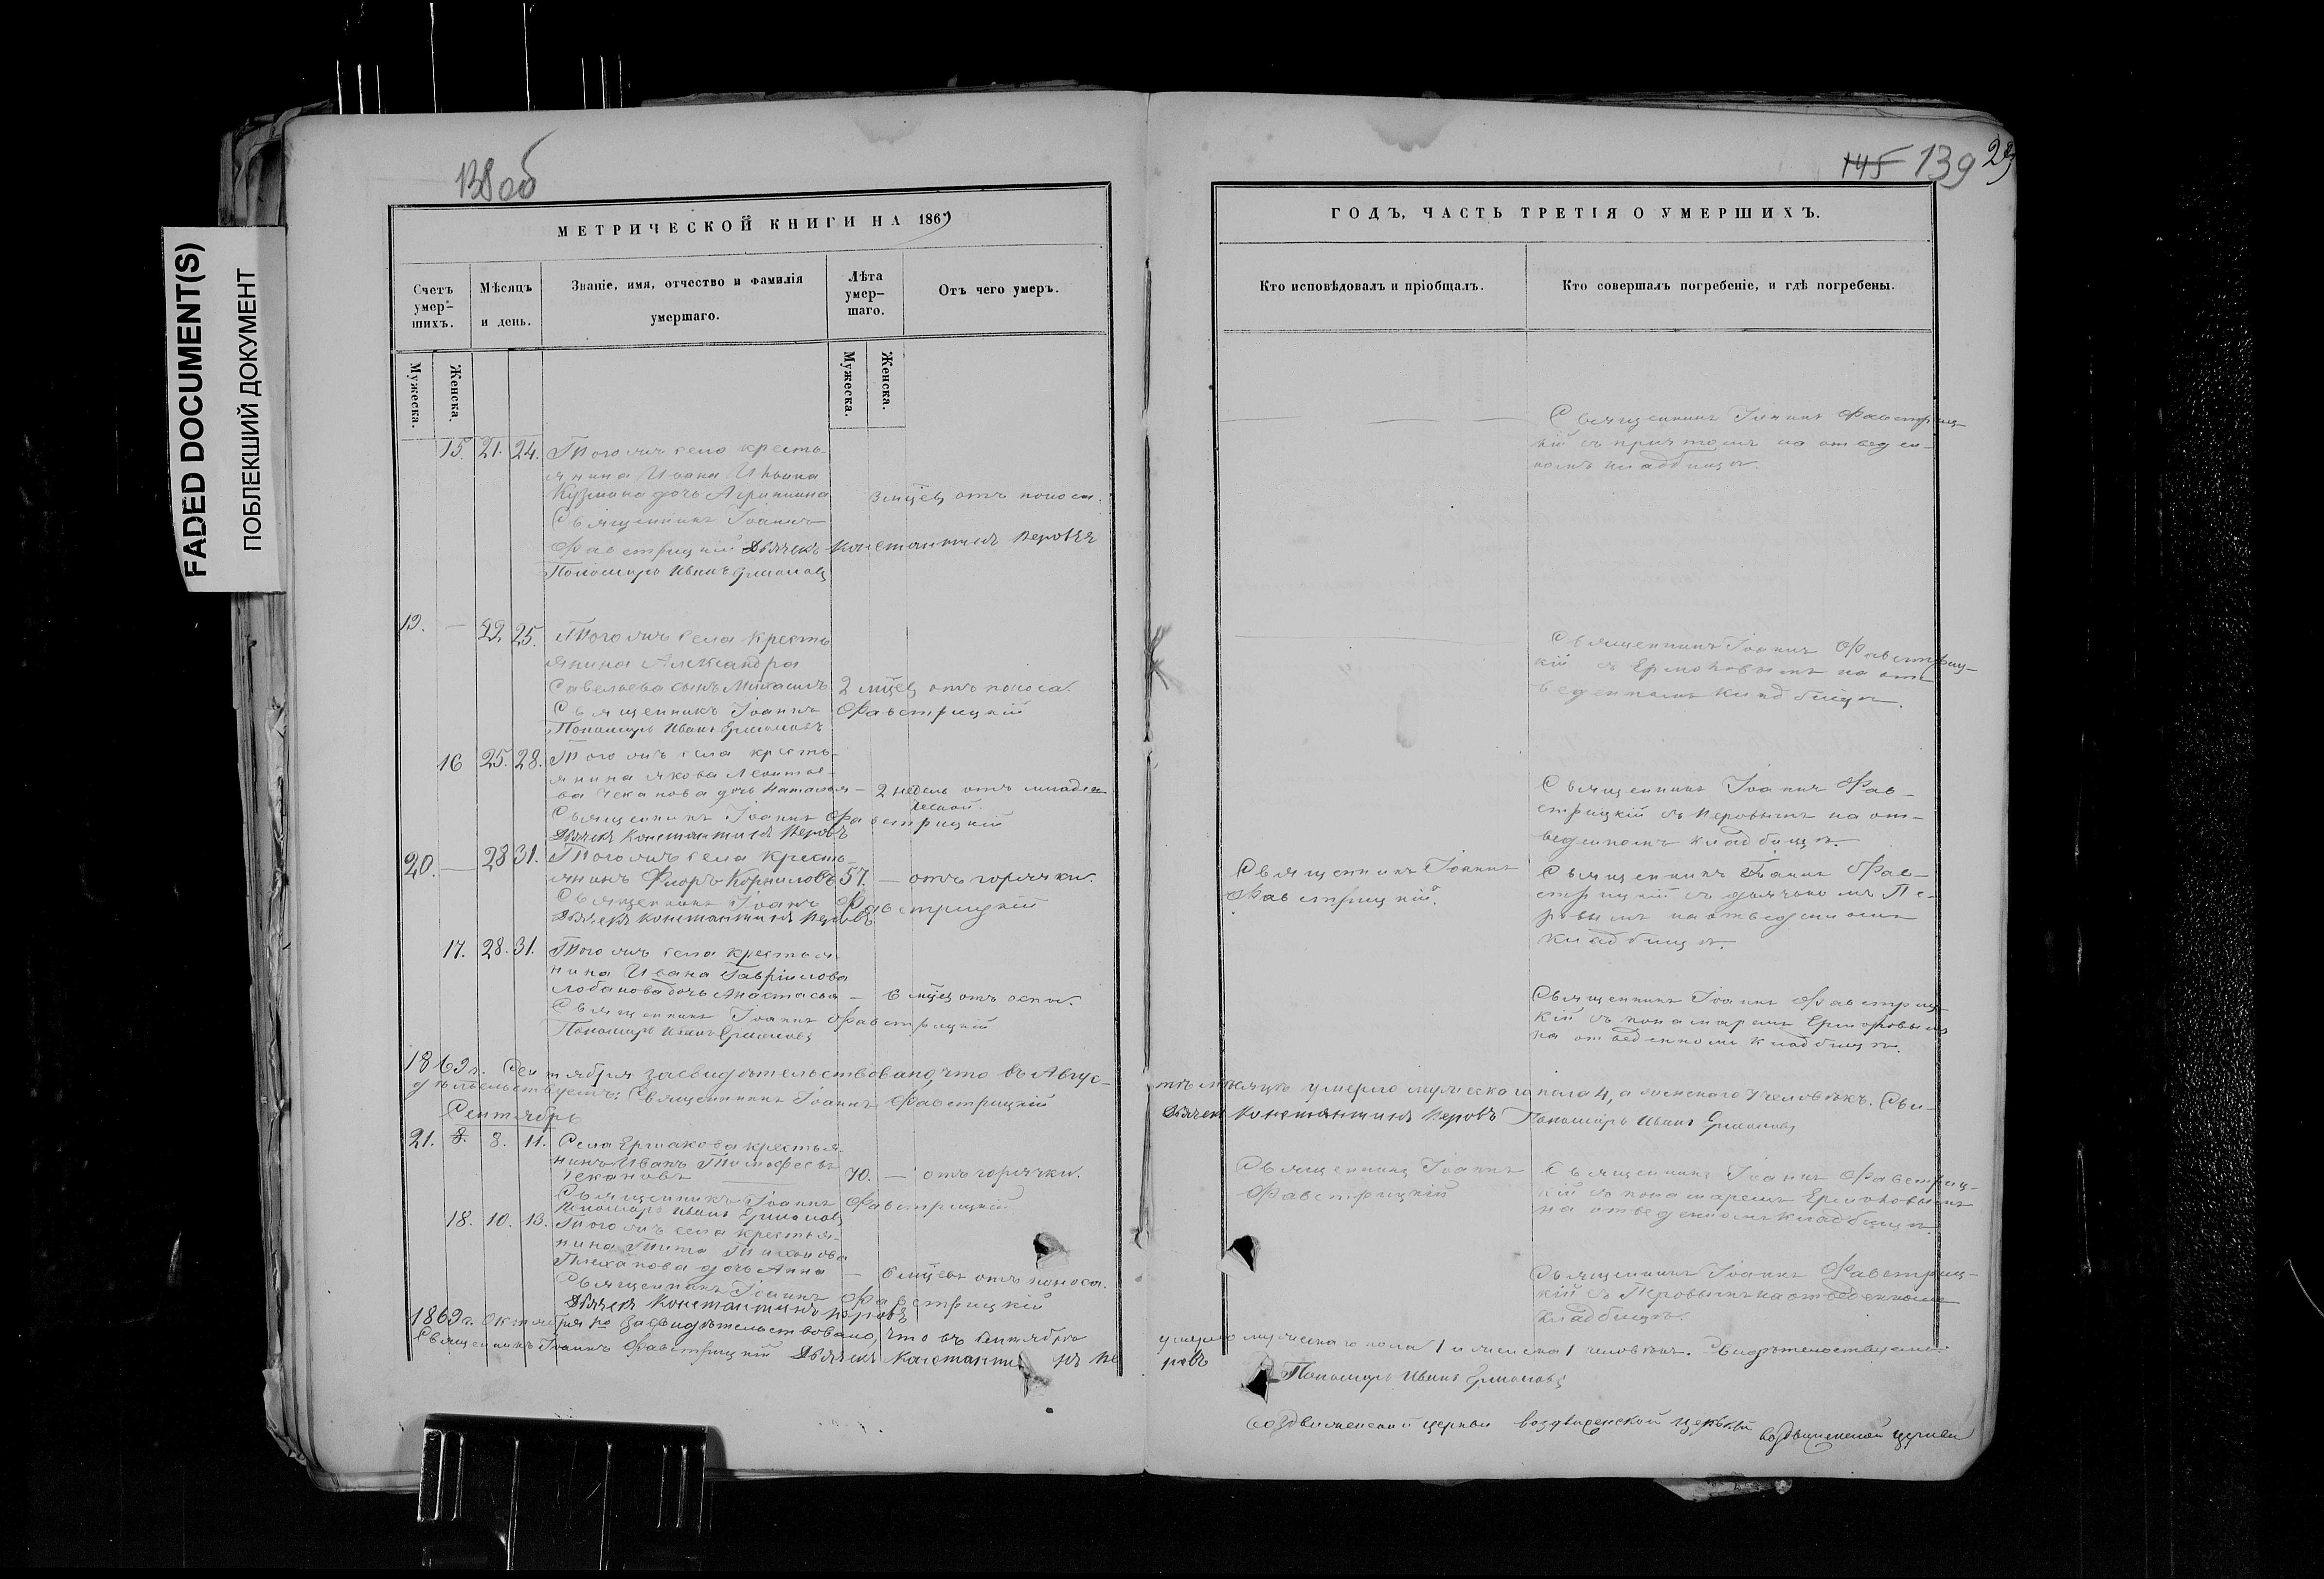 FADED DOCUMENT(S)
ПОБЛЕКШИЙ ДОКУМЕНТ
138 об
145 139
МЕТРИЧЕСКОЙ КНИГИ НА 1869
Счетъ умершихъ.
Мѣсяцъ и день.
Званіе, имя, отчество и фамилія умершаго.
Лѣта умершаго.
Отъ чего умеръ.
Мужеска.
Женска.
Мужеска.
Женска.
15. 21. 24. Того же села кресть-
янина Ивана
Кузмина дочь Агрипина 3 мѣсец отъ поноса.
Священникъ Іоаннъ
Фавстрицкій Дьячекъ Константинъ Перовъ
Пономарь Иванъ Ермоловъ
19. — 22. 25. Того же села кресть
янина Александра
Савельева сынъ Михаилъ 2 мѣсец отъ поноса.
Священникъ Іоаннъ Фавстрицкій
Пономарь Иванъ Ермоловъ
16 25. 28. Того же села кресть-
янина Якова Леонтье-
ва Чеканова дочь Наталья — 2 недель отъ младен
ческой.
Священникъ Іоаннъ Фавстрицкій
Дьячекъ Константинъ Перовъ
20. — 28 31. Того же села кресть-
янинъ Флоръ Корниловъ 57. — отъ горячки.
Священникъ Іоаннъ Фавстрицкій
Дьячекъ Константинъ Перовъ
17. 28. 31. Того же села крестья
нина Ивана Гавріилова
Лобанова дочь Анастасья — 6 мѣсец отъ оспы.
Священникъ Іоаннъ Фавстрицкій
Пономарь Иванъ Ермоловъ
1869 г. Сентября засвидѣтельствовано, что въ Авгус-
дѣтельствуемъ: Священникъ Іоаннъ Фавстрицкій
Сентябрь
21. 8. 8. 11. Села Ермакова крестья
нинъ Иванъ Тимофеевъ
Чекановъ 70. — отъ горячки.
Священникъ Іоаннъ Фавстрицкій
Пономарь Иванъ Ермоловъ
18. 10. 13. Того же села крестья-
нина Тита Тихонова
Плеханова дочь Анна — 6 мѣсец отъ поноса.
Священникъ Іоаннъ Фавстрицкій
Дьячекъ Константинъ Перовъ
1869 г. Октября засвидѣтельствовано, что въ Сентябрѣ
Священникъ Іоаннъ Фавстрицкій Дьячекъ Константинъ Пе
ГОДЪ, ЧАСТЬ ТРЕТІЯ О УМЕРШИХЪ.
Кто исповѣдовалъ и пріобщалъ.
Кто совершалъ погребеніе, и гдѣ погребены.
Священникъ Іоаннъ Фавстриц-
кій съ причтомъ на отведен-
номъ кладбищѣ.
Священникъ Іоаннъ Фавстриц-
кій съ Ермоловымъ на от
веденномъ кладбищѣ.
Священникъ Іоаннъ Фав-
стрицкій съ Перовымъ на от-
веденномъ кладбищѣ.
Священникъ Іоаннъ
Фавстрицкій.
Священникъ Іоаннъ Фав-
стрицкій съ дьячкомъ Пе-
ровымъ на отведенномъ
кладбищѣ.
Священникъ Іоаннъ Фавстриц
кій съ пономаремъ Ермоловымъ
на отведенномъ кладбищѣ.
тѣ мѣсяцѣ умерло мужеска пола 4, а женского 7 человѣкъ. Сви-
Дьячекъ Константинъ Перовъ Пономарь Иванъ Ермоловъ
Священникъ Іоаннъ
Фавстрицкій
Священникъ Іоаннъ Фавстриц-
кій съ понамаремъ Ермоловымъ
на отведенномъ кладбищѣ
Священникъ Іоаннъ Фавстриц-
кій съ Перовымъ на отведенномъ
кладбищѣ.
умерло мужескаго пола 1 и женска 1 человѣкъ. Свидѣтельствуемъ.
ровъ
Пономарь Иванъ Ермоловъ
Воздвиженской церкви воздвиженской церкви воздвиженской церкви